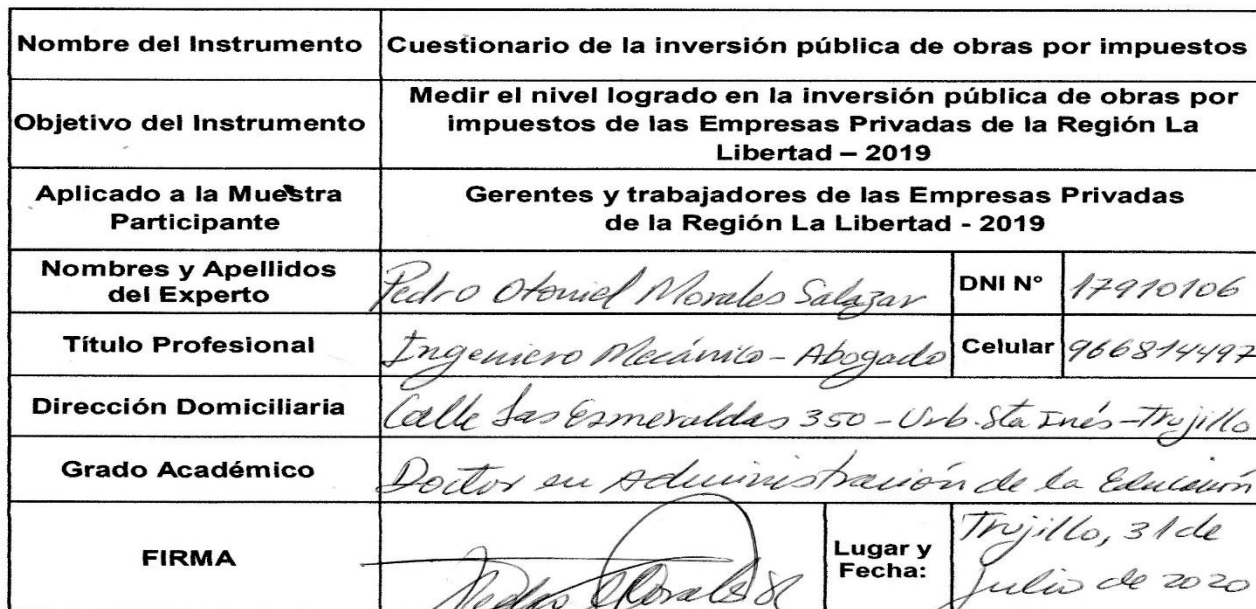 Nombre del Instrumento Cuestionario de la inversión pública de obras por impuestos
Objetivo del Instrumento
Medir el nivel logrado en la inversión pública de obras por
impuestos de las Empresas Privadas de la Región La
Libertad – 2019
Aplicado a la Muestra
Participante
Gerentes y trabajadores de las Empresas Privadas
de la Región La Libertad - 2019
Nombres y Apellidos
del Experto
Pedro Otoniel Morales Salazar
DNI N° 17910106
Título Profesional
Ingeniero Mecánico - Abogado
Celular 966814497
Dirección Domiciliaria
Calle Las Esmeraldas 350 - Urb. Sta Inés - Trujillo
Grado Académico
Doctor en Administración de la Educación
FIRMA
Pedro Morales
Lugar y
Fecha:
Trujillo, 31 de
Julio de 2020